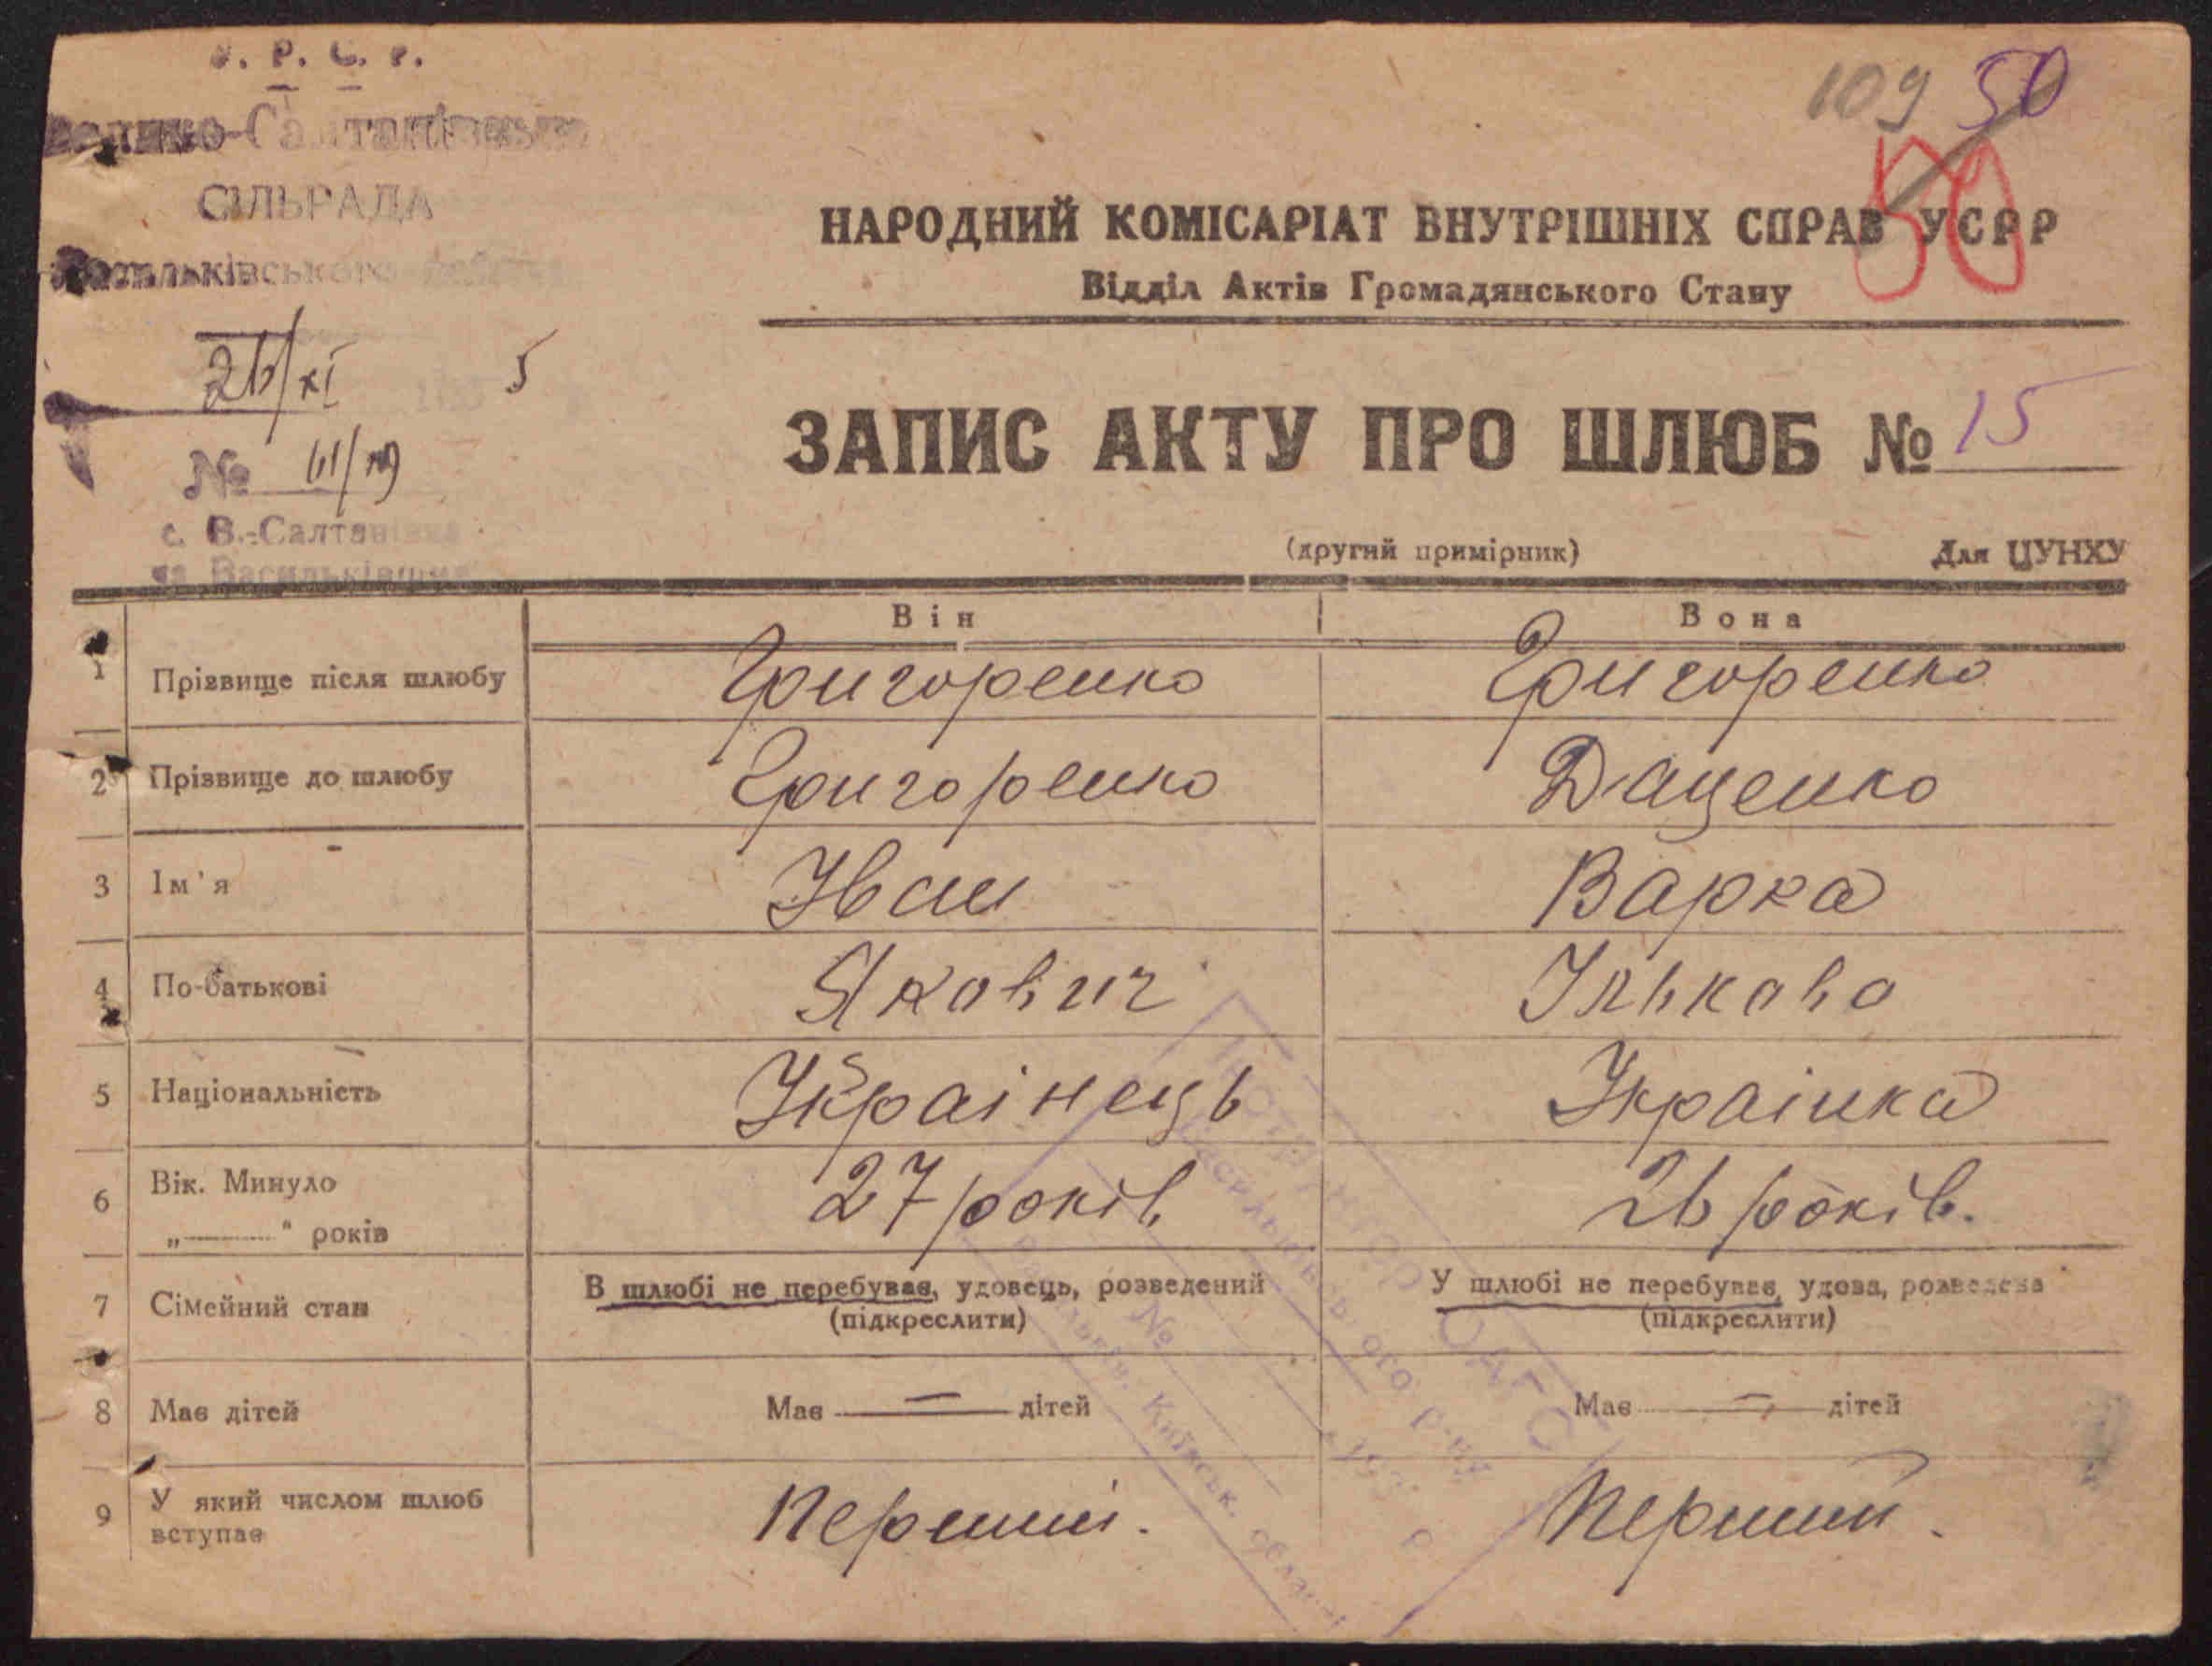 У. Р. С. Р.
Велико-Салтанівська
СІЛЬРАДА
Васильківського району
26/XI 193 5
№ 111/19
с. В.-Салтанівка
на Васильківщині
109 50
50
НАРОДНИЙ КОМІСАРІАТ ВНУТРІШНІХ СПРАВ УСРР
Відділ Актів Громадянського Стану
ЗАПИС АКТУ ПРО ШЛЮБ № 15
(другий примірник) Для ЦУНХУ
Він Вона
1 Прізвище після шлюбу Григоренко Григоренко
2 Прізвище до шлюбу Григоренко Даценко
3 Ім'я Іван Варка
4 По-батькові Якович Ількова
5 Національність Українець Українка
6 Вік. Минуло 27 років 26 років.
„——" років
7 Сімейний стан В шлюбі не перебував, удовець, розведений У шлюбі не перебуває, удова, розведена
(підкреслити) (підкреслити)
8 Має дітей Має — дітей Має — дітей
9 У який числом шлюб
вступає Перший. Перший.
Інспектор ОАГС
Васильківського р-ну
№ 193 р
Васильків, Київськ. області